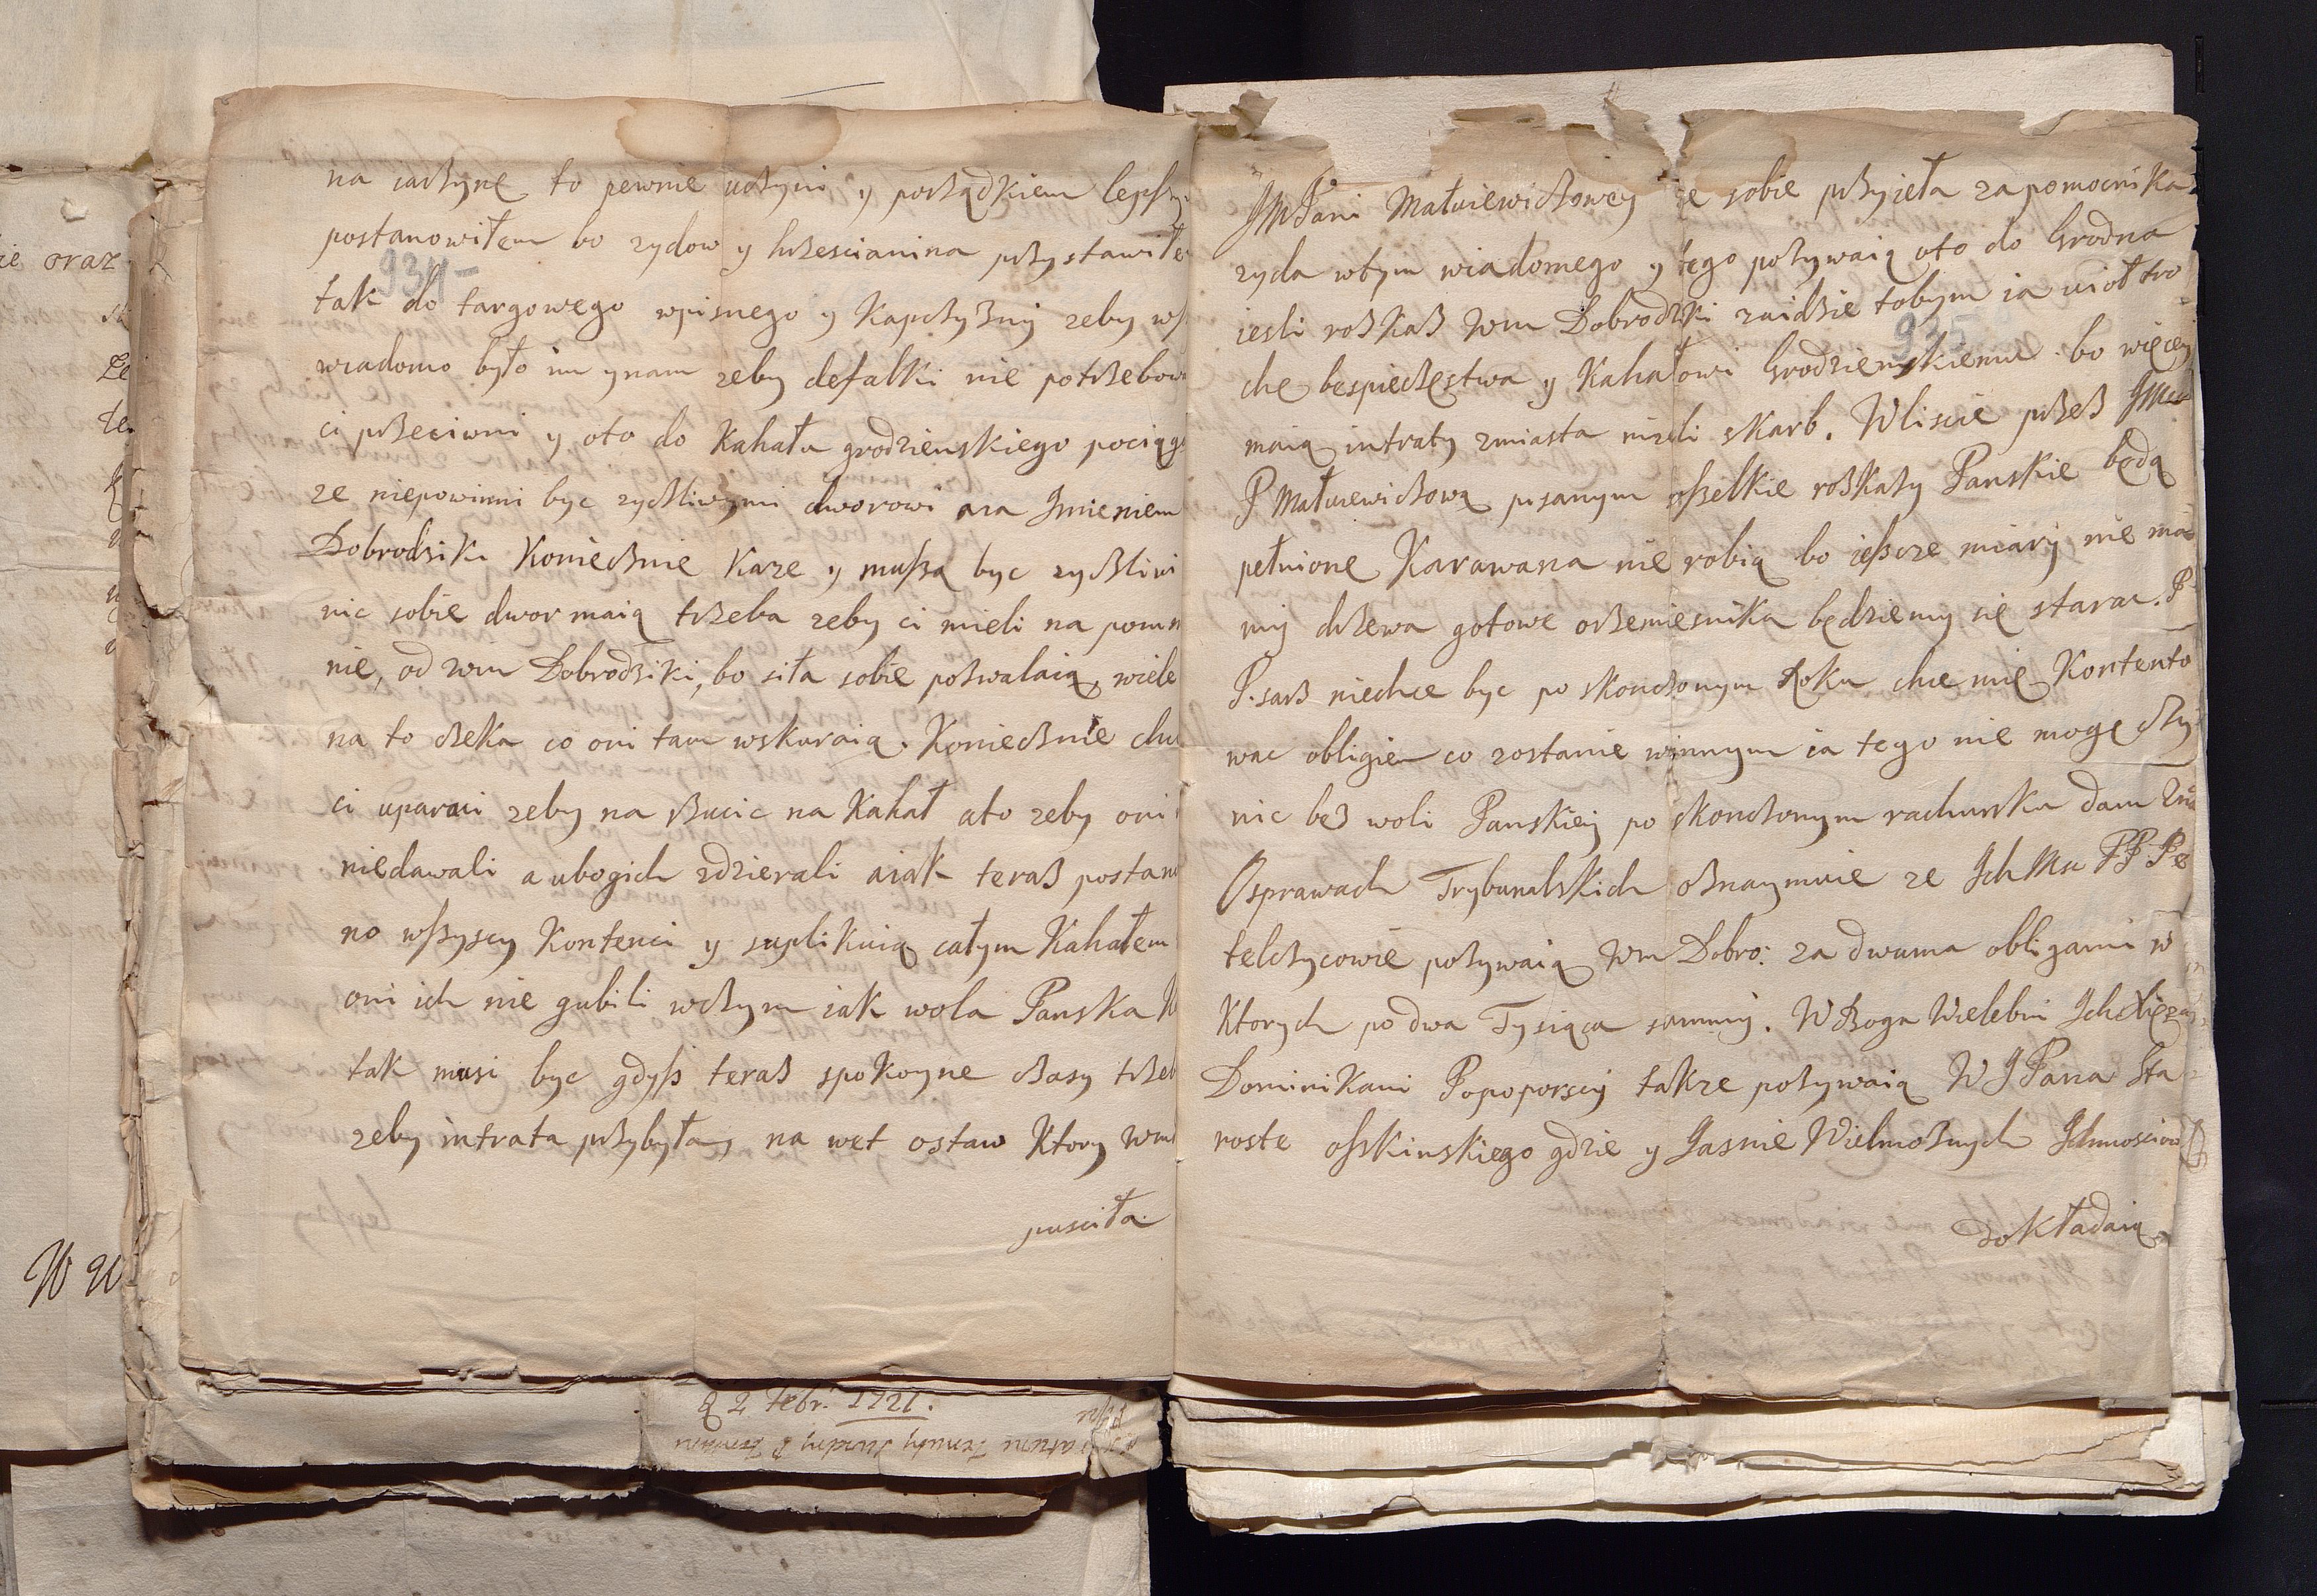 na iactynę to pewnie uctyni y porządkiem lepszy
postanowiłem bo zydow y hrzescianina przystawiłe
934
tak do targowego wpisnego y Kapctyzny zeby ws
wiadomo było im y nam zeby defalki nie potrzebow
ci przeciwni y oto do Kahału grodzienskiego pociąg
ze niepowinni byc zycßliwymi dworowi a ia Imieniem
Dobrodziki Koniecßnie Kaze y mußą byc zycßliwi
nic sobie dwor maią trzeba zeby ci mieli na pomn
nie, od wm Dobrodziki, bo siła sobie pozwalaią, wiele
na to czeka co oni tam wskuraią. Koniecßnie chc
ci uparci zeby na zucic na Kahał a to zeby oni
niedawali a ubogich zdzierali a iak teraß postan
no wßyscy Kontenci y suplikuią całym Kahałem
oni ich nie gubili wcßym iak wola Panska
tak musi byc gdyß teraß spokoyne cßasy trzeb
zeby intrata przybyła, na wet ostaw Ktory wm
pusciła.
JMPani Matuiewicßowey ze sobie przyieła za pomocnika
zyda wtym wiadomego y tego pozywaią oto do Grodna
iesli roßkaß wm Dobrodziki zaidzie tobym ia uiół tro
935
che bespiecßęstwa y Kahałowi Grodzienskiemu bo więcey
maią intraty zmiasta nizeli skarb. Wliscie przeß JMc
P Matuiewicßową pisanym wßelkie roßkazy Panskie będą
pełnione Karawana nie robią bo ießcze miary nie ma
my drzewa gotowe orzemiesnika będziemy się starac. P
Pisarß niechce byc po skoncßonym Roku chce mię Kontento
wac obligiem co zostanie winnym ia tego nie mogę cßy
nic beß woli Panskiey po skoncßonym rachunku dam zna
O sprawach Trybunalskich oznaymuie ze Ich Mc PP Pe
telcßycowie pozywaią wm Dobro: za dwuma obligami w
Ktorych po dwa Tysiąca summy. W Boga Wielebni Ich Xięza
Dominikani Popoporscy takze pozywaią W J Pana Sta
roste oßkinskiego gdzie y Jasnie Wielmoznych Ichmosciow
dokładaią
ie oraz
d 2 Febr. 1721.